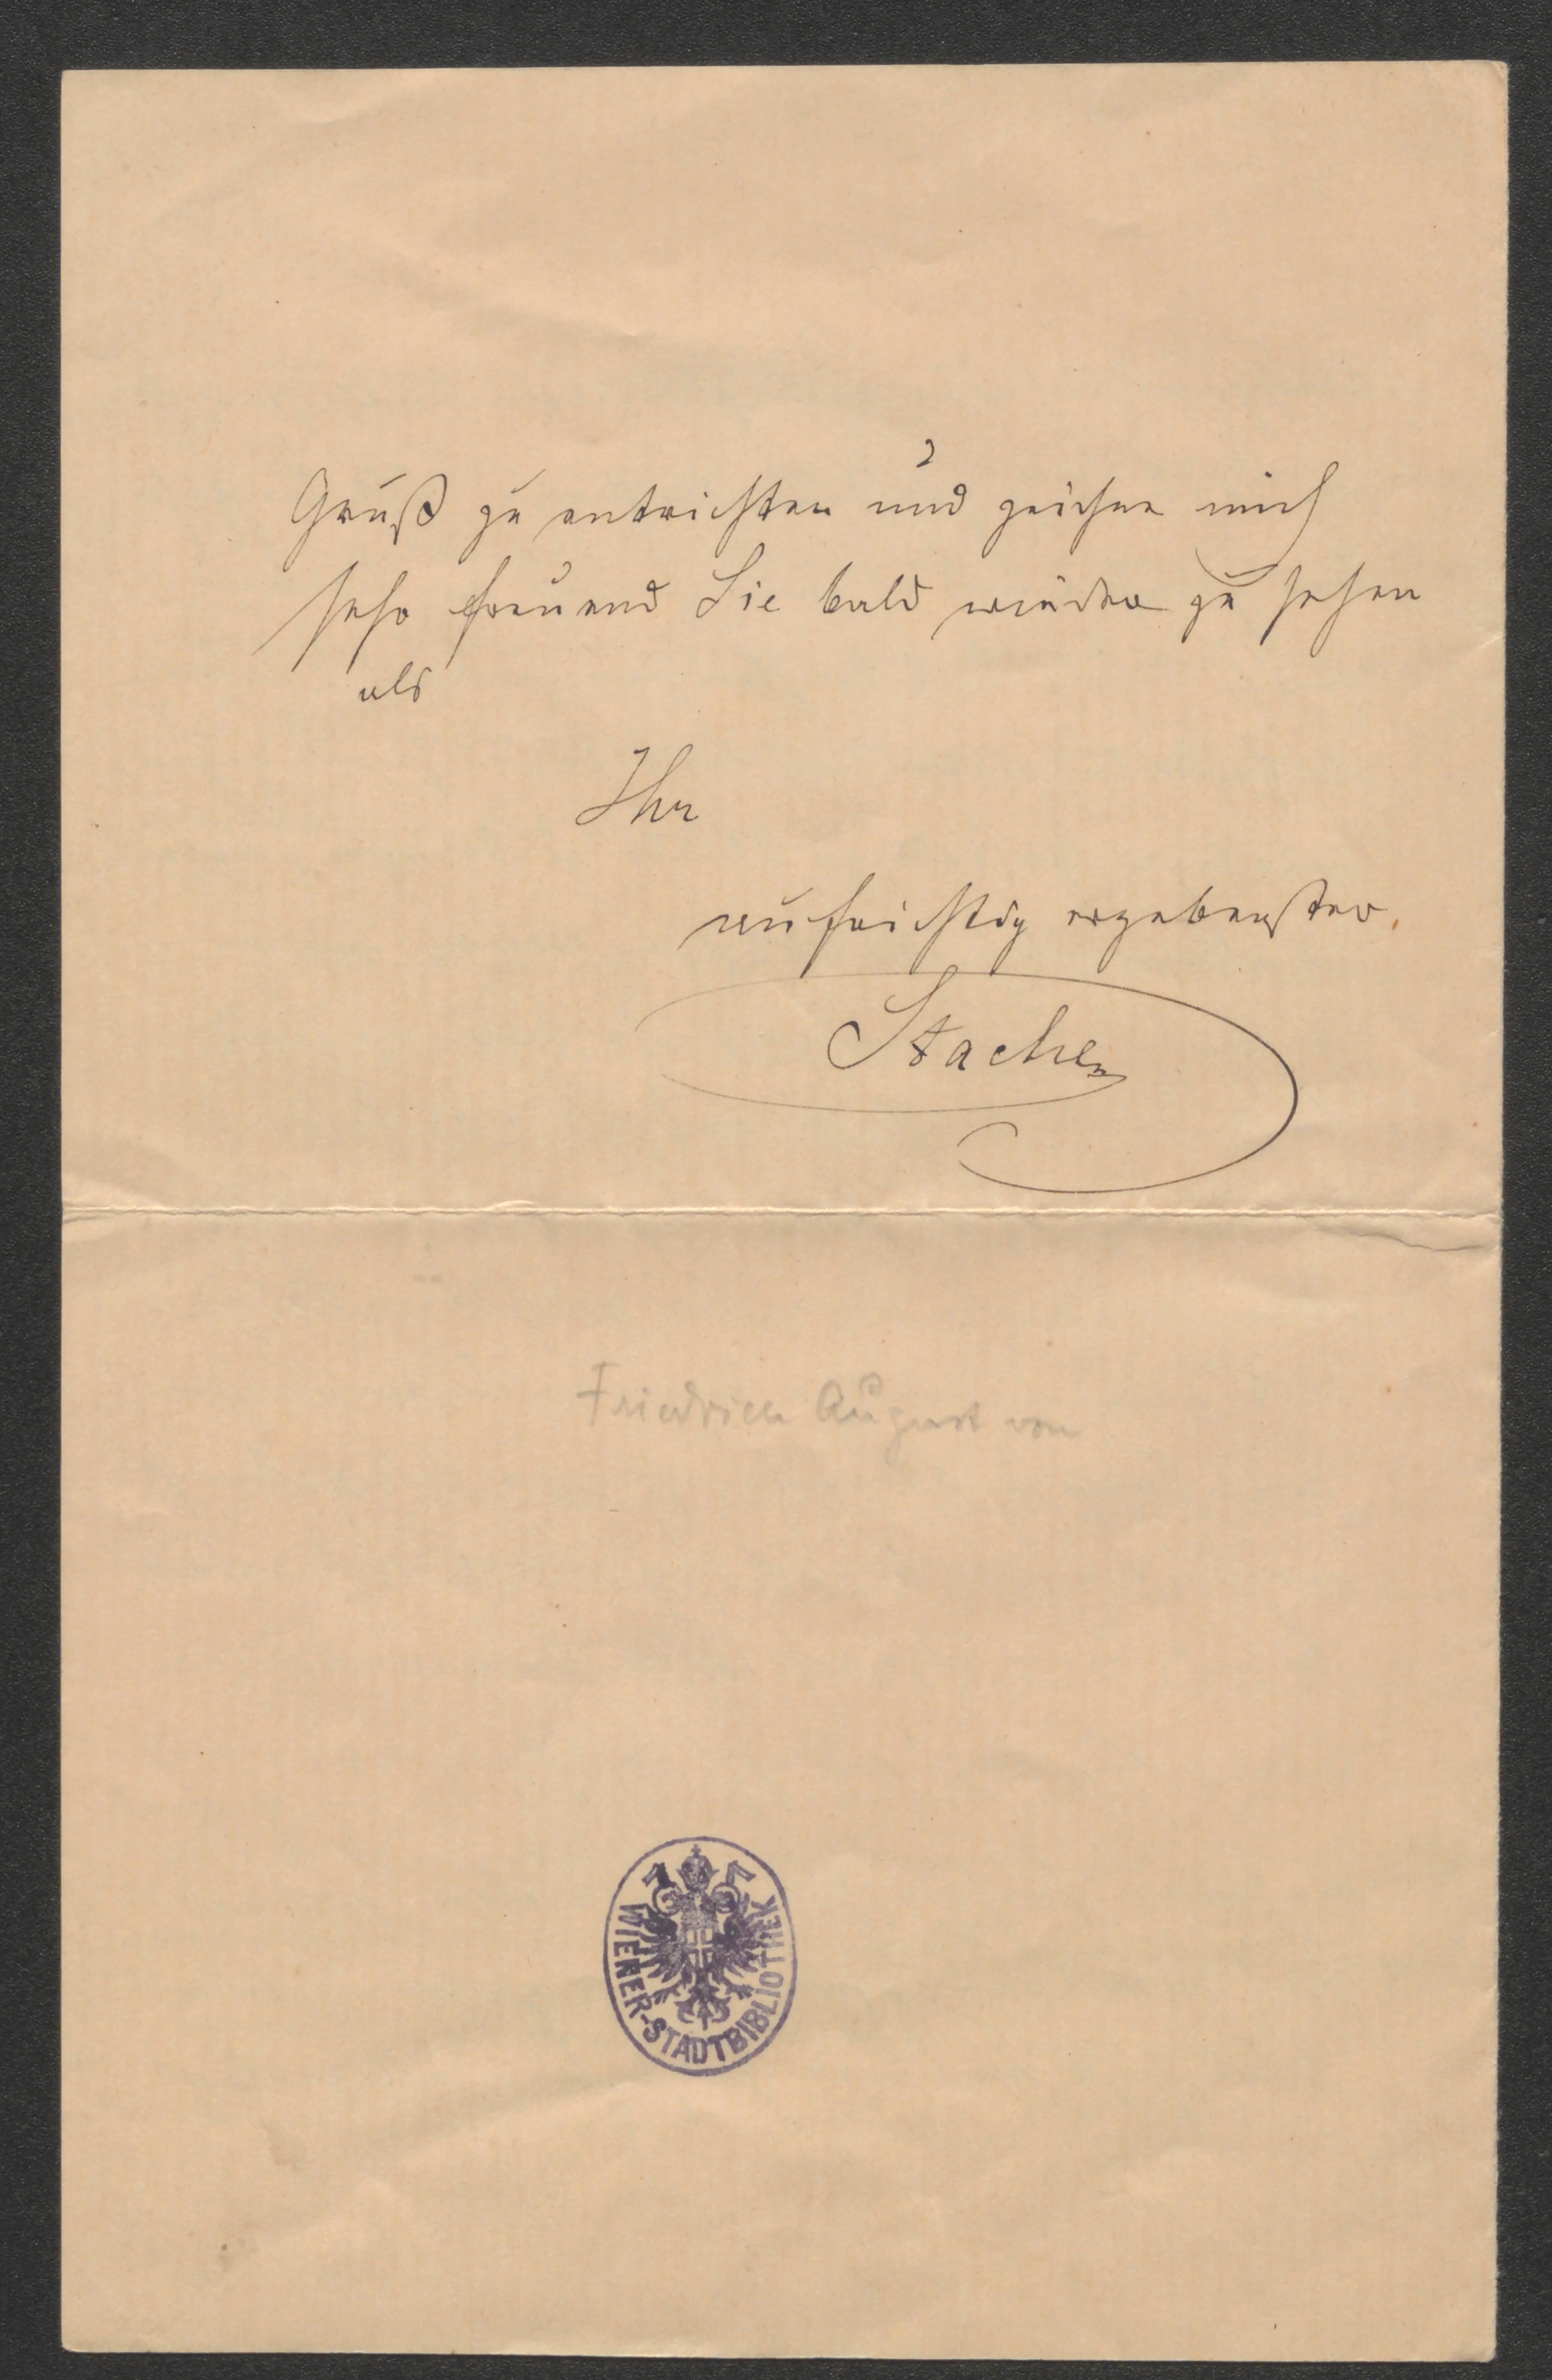 Gruß zu entrichten und zeichne mich
sehr freuend Sie bald wieder zu sehen
als
Ihr
aufrichtig ergebenster.
Stache
Friedrich August von
WIENER-STADTBIBLIOTHEK